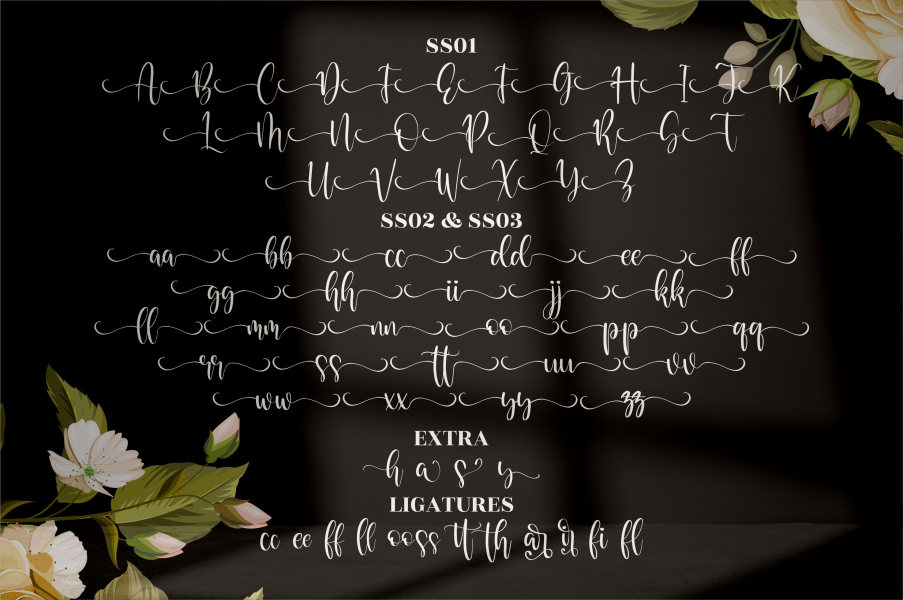 SS01
A B C D F E F G H I J K
L M N O P Q R S T
U V W X Y Z
SS02 & SS03
aa bb cc dd ee ff
gg hh ii jj kk
ll mm nn oo pp qq
rr ss tt uu vv
ww xx yy zz
EXTRA
h a s y
LIGATURES
cc ee ff ll ooss tt th
fi fl